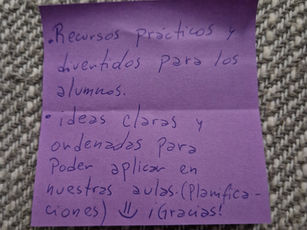 • Recursos prácticos y
divertidos para los
alumnos.
• ideas claras y
ordenadas para
Poder aplicar en
nuestras aulas. (Planifica-
ciones) ¡Gracias!